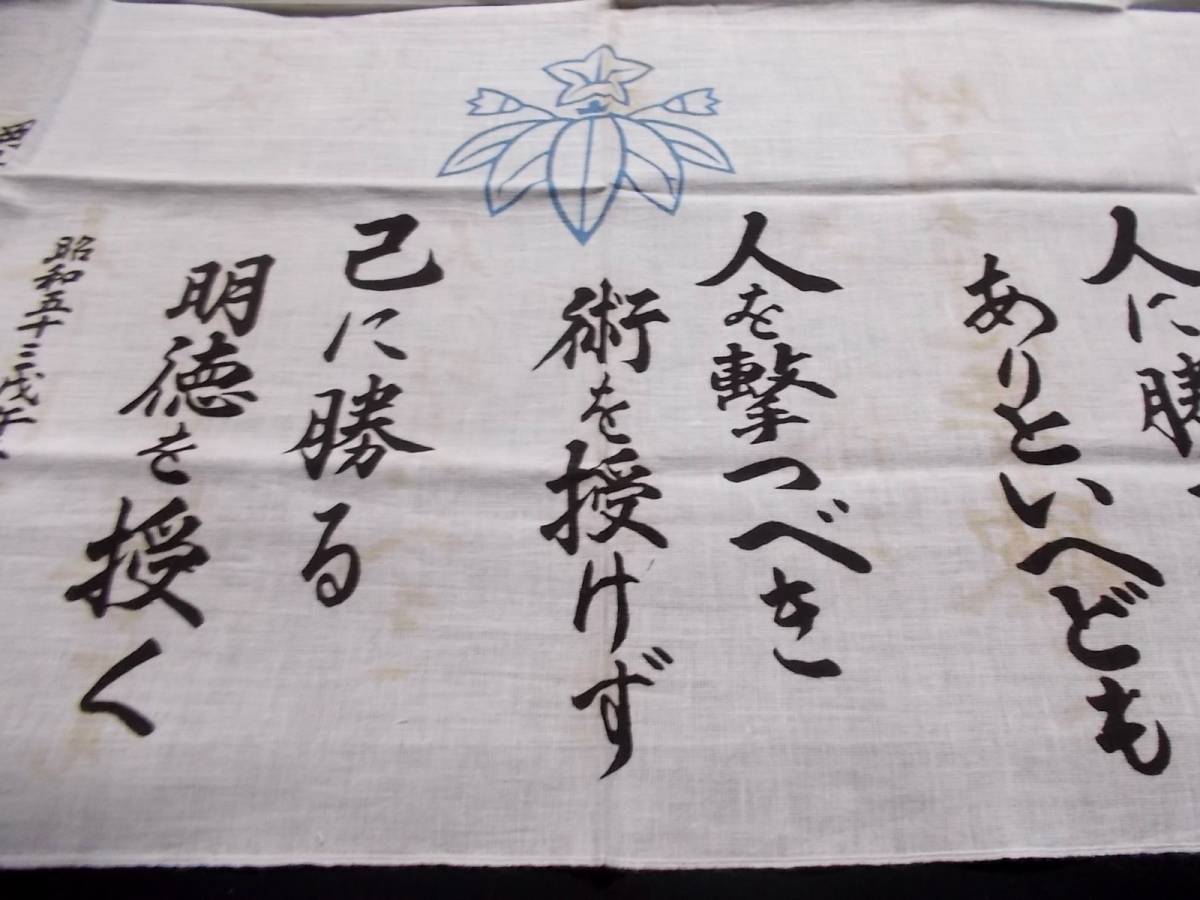 人に勝
ありといへども
人を撃つべき
術を授けず
己に勝る
明徳を授く
昭和五十三戊午